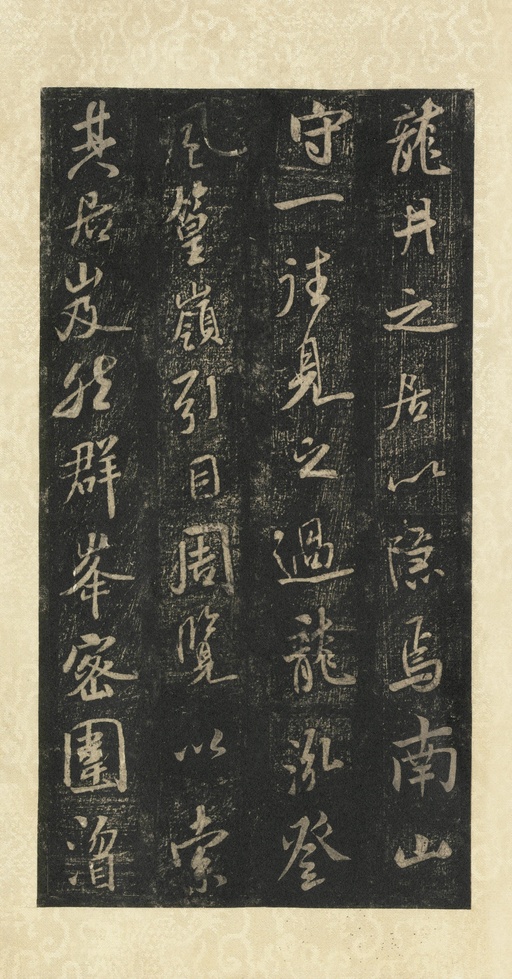 龍井之居以隱焉南山
守一往見之過龍泓登
風篁嶺引目周覽以索
其居岌然群峯密圍溍